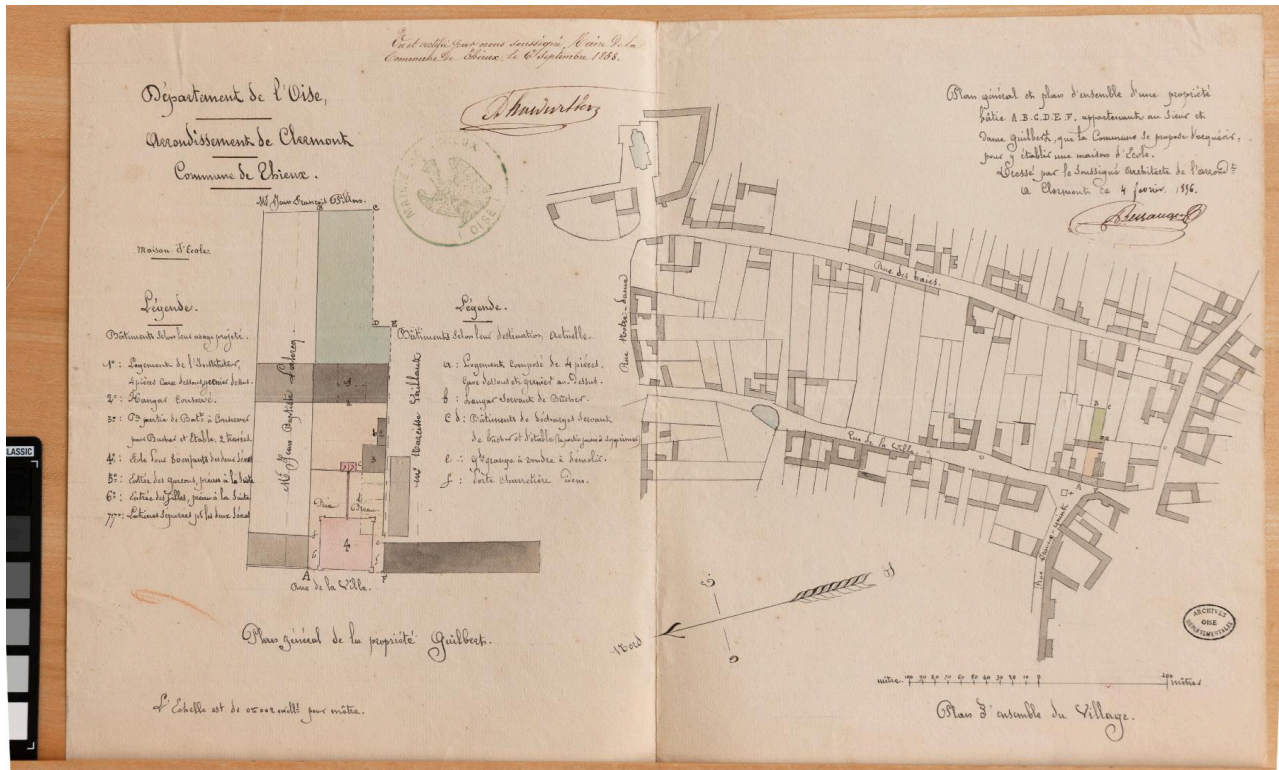 Vu et certifié par nous soussigné, Maire de la
Commune de Thieux, le 6 Septembre 1858.
Département de l'Oise,
Arrondissement de Clermont
Commune de Thieux.
Mr Jean François
B
C
Maison d'Ecole
Légende.
Bâtiments selon leur usage projeté.
1º : Logement de l'Instituteur,
4 pièces Cave dessous grenier dessus.
2º : Hangar Conservé.
3º : Ptie partie de Batt à Conserver
pour Bucher et Etable. 2 travées
4º : Ecole pour 80 enfants des deux Sexes
5º : Entrée des garçons, préau à la Suite
6º : Entrée des filles, préau à la Suite
7º : Latrines séparées pr les deux Sexes
Mr Jean Baptiste
Mr Narcisse Gaillard
D
E
Préau
Préau
4
A
F
Rue de la Ville.
Plan général de la propriété Guilbert.
L'Echelle est de 0m002 mill. pour mètre.
Légende.
Bâtiments selon leur destination actuelle.
a : Logement Composé de 4 pièces.
Cave dessous et grenier au dessus.
b : hangar Servant de Bûcher.
c d : Bâtiments de décharges Servant
de bûcher et d'étable
e : grange à vendre à démolir.
f : Porte charretière idem.
MAIRIE
OISE
Plan général et plan d'ensemble d'une propriété
bâtie A.B.C.D.E.F, appartenant au Sieur et
Dame Guilbert, que la Commune se propose d'acquérir,
pour y établir une maison d'Ecole.
Dressé par le Soussigné architecte de l'arrondt
a Clermont le 4 fevrier 1856.
Rue des haies.
Rue Notre-Dame
Rue de la Ville
Nord
S
ARCHIVES
OISE
DÉPARTEMENTALES
mètre. 100 90 80 70 60 50 40 30 20 10 0 100 mètres
Plan d'ensemble du Village.
CLASSIC